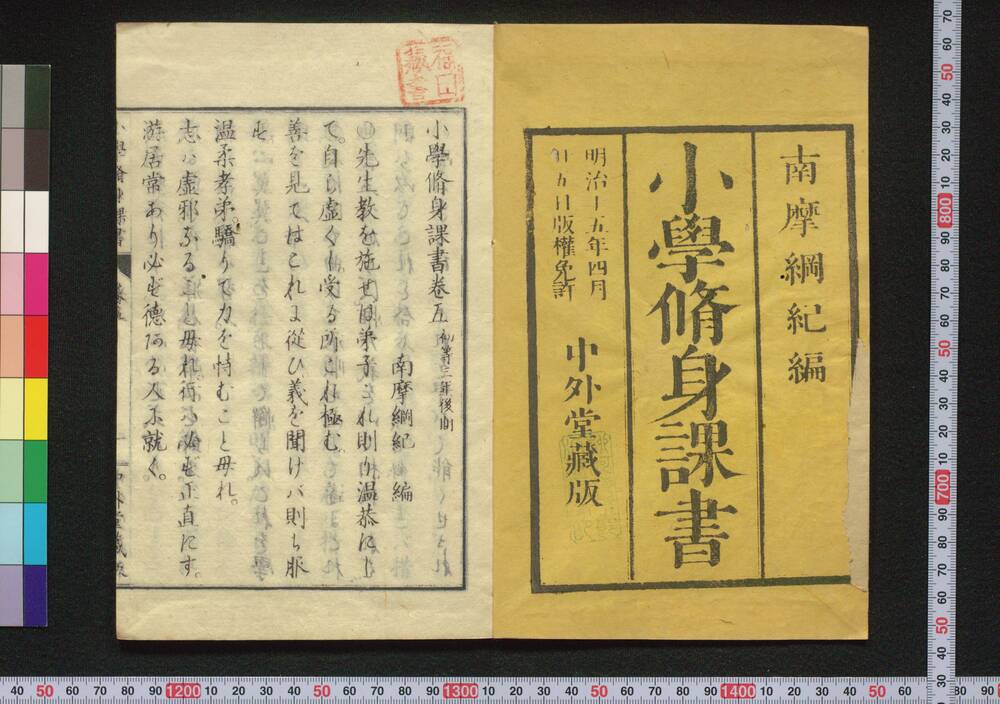 南摩綱紀編
小學脩身課書
明治十五年四月
廿五日版權免許
中外堂藏版
小學脩身課書卷五 初等三年後期
南摩綱紀 編
先生教を施せば弟子これ則り温恭にし
て。自ら虚くし受る所これ極む。
善を見てはこれに從ひ義を聞けバ則ち服
す。
温柔孝弟驕りて力を恃むこと毋れ。
志ハ虚邪なること毋れ。行ハ必ず正直にす。
游居常あり必ず德ある人に就く。
小學脩身課書